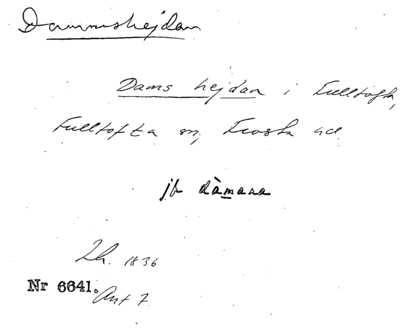 Dammshejdan
Dams hejdan i Fulltofta,
Fulltofta sn, Frosta hd
jfr dàmana
Lh. 1836
Nr 6641. Ant 7